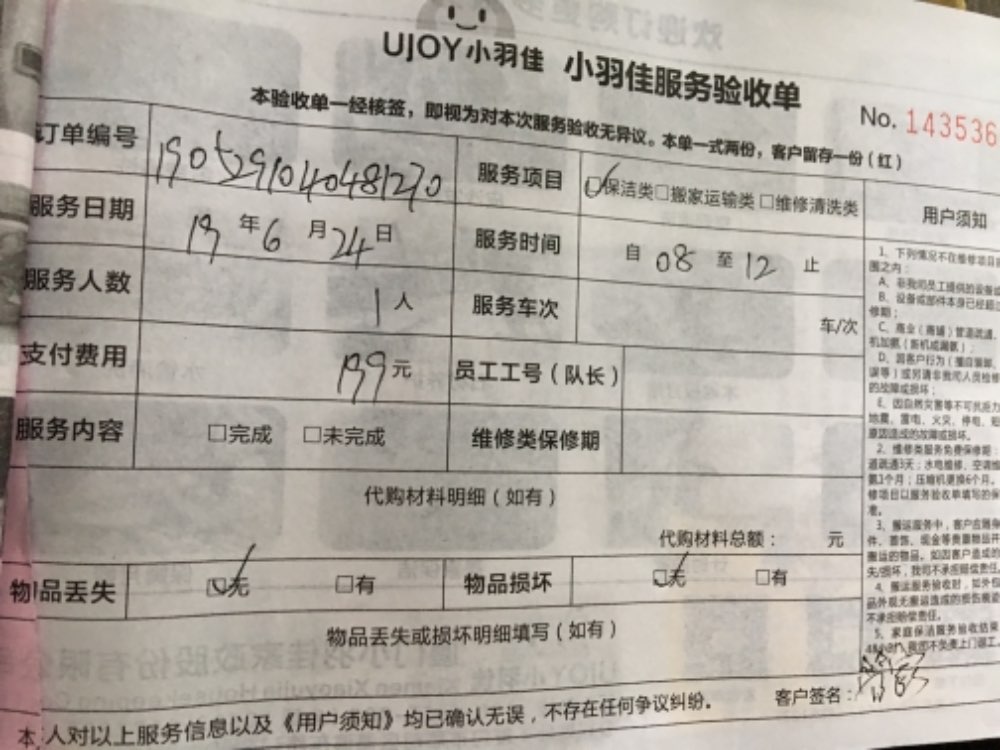 UJOY小羽佳 小羽佳服务验收单
No. 143536
本验收单一经核签，即视为对本次服务验收无异议。本单一式两份，客户留存一份（红）
订单编号 1905291040481270 服务项目 ☑保洁类□搬家运输类□维修清洗类
服务日期 19年6月24日 服务时间 自08至12止
服务人数 1人 服务车次 车/次
支付费用 199元 员工工号（队长）
服务内容 □完成 □未完成 维修类保修期
代购材料明细（如有）
代购材料总额： 元
物品丢失 ☑无 □有 物品损坏 ☑无 □有
物品丢失或损坏明细填写（如有）
客户签名：
本人对以上服务信息以及《用户须知》均已确认无误，不存在任何争议纠纷。
用户须知
1、下列情况不在维修项目
围之内：
A、非我司员工提供的设备或
B、设备或部件本身已经超过
修期；
C、商业（商铺）管道疏通、
机加氨（新机或漏氨）；
D、因客户行为（擅自装卸、
误等）或另请非我司人员检修
的故障或损坏；
E、因自然灾害等不可抗力
地震、雷电、火灾、停电、
原因造成的故障或损坏。
2、维修类服务免费保修期：
道疏通3天；水电维修、空调
氨1个月；压缩机更换6个月。
修项目以服务验收单填写的保
准。
3、搬运服务中，客户应随身
件、首饰、现金等贵重物品并
搬运的物品，如因客户造成的
失/损坏，我司不承担赔偿责任。
4、搬运服务验收时，如外包
品外观无搬运造成的损伤痕迹
不承担赔偿责任。
5、家庭保洁服务验收结束
48小时，我司不负责上门返工。